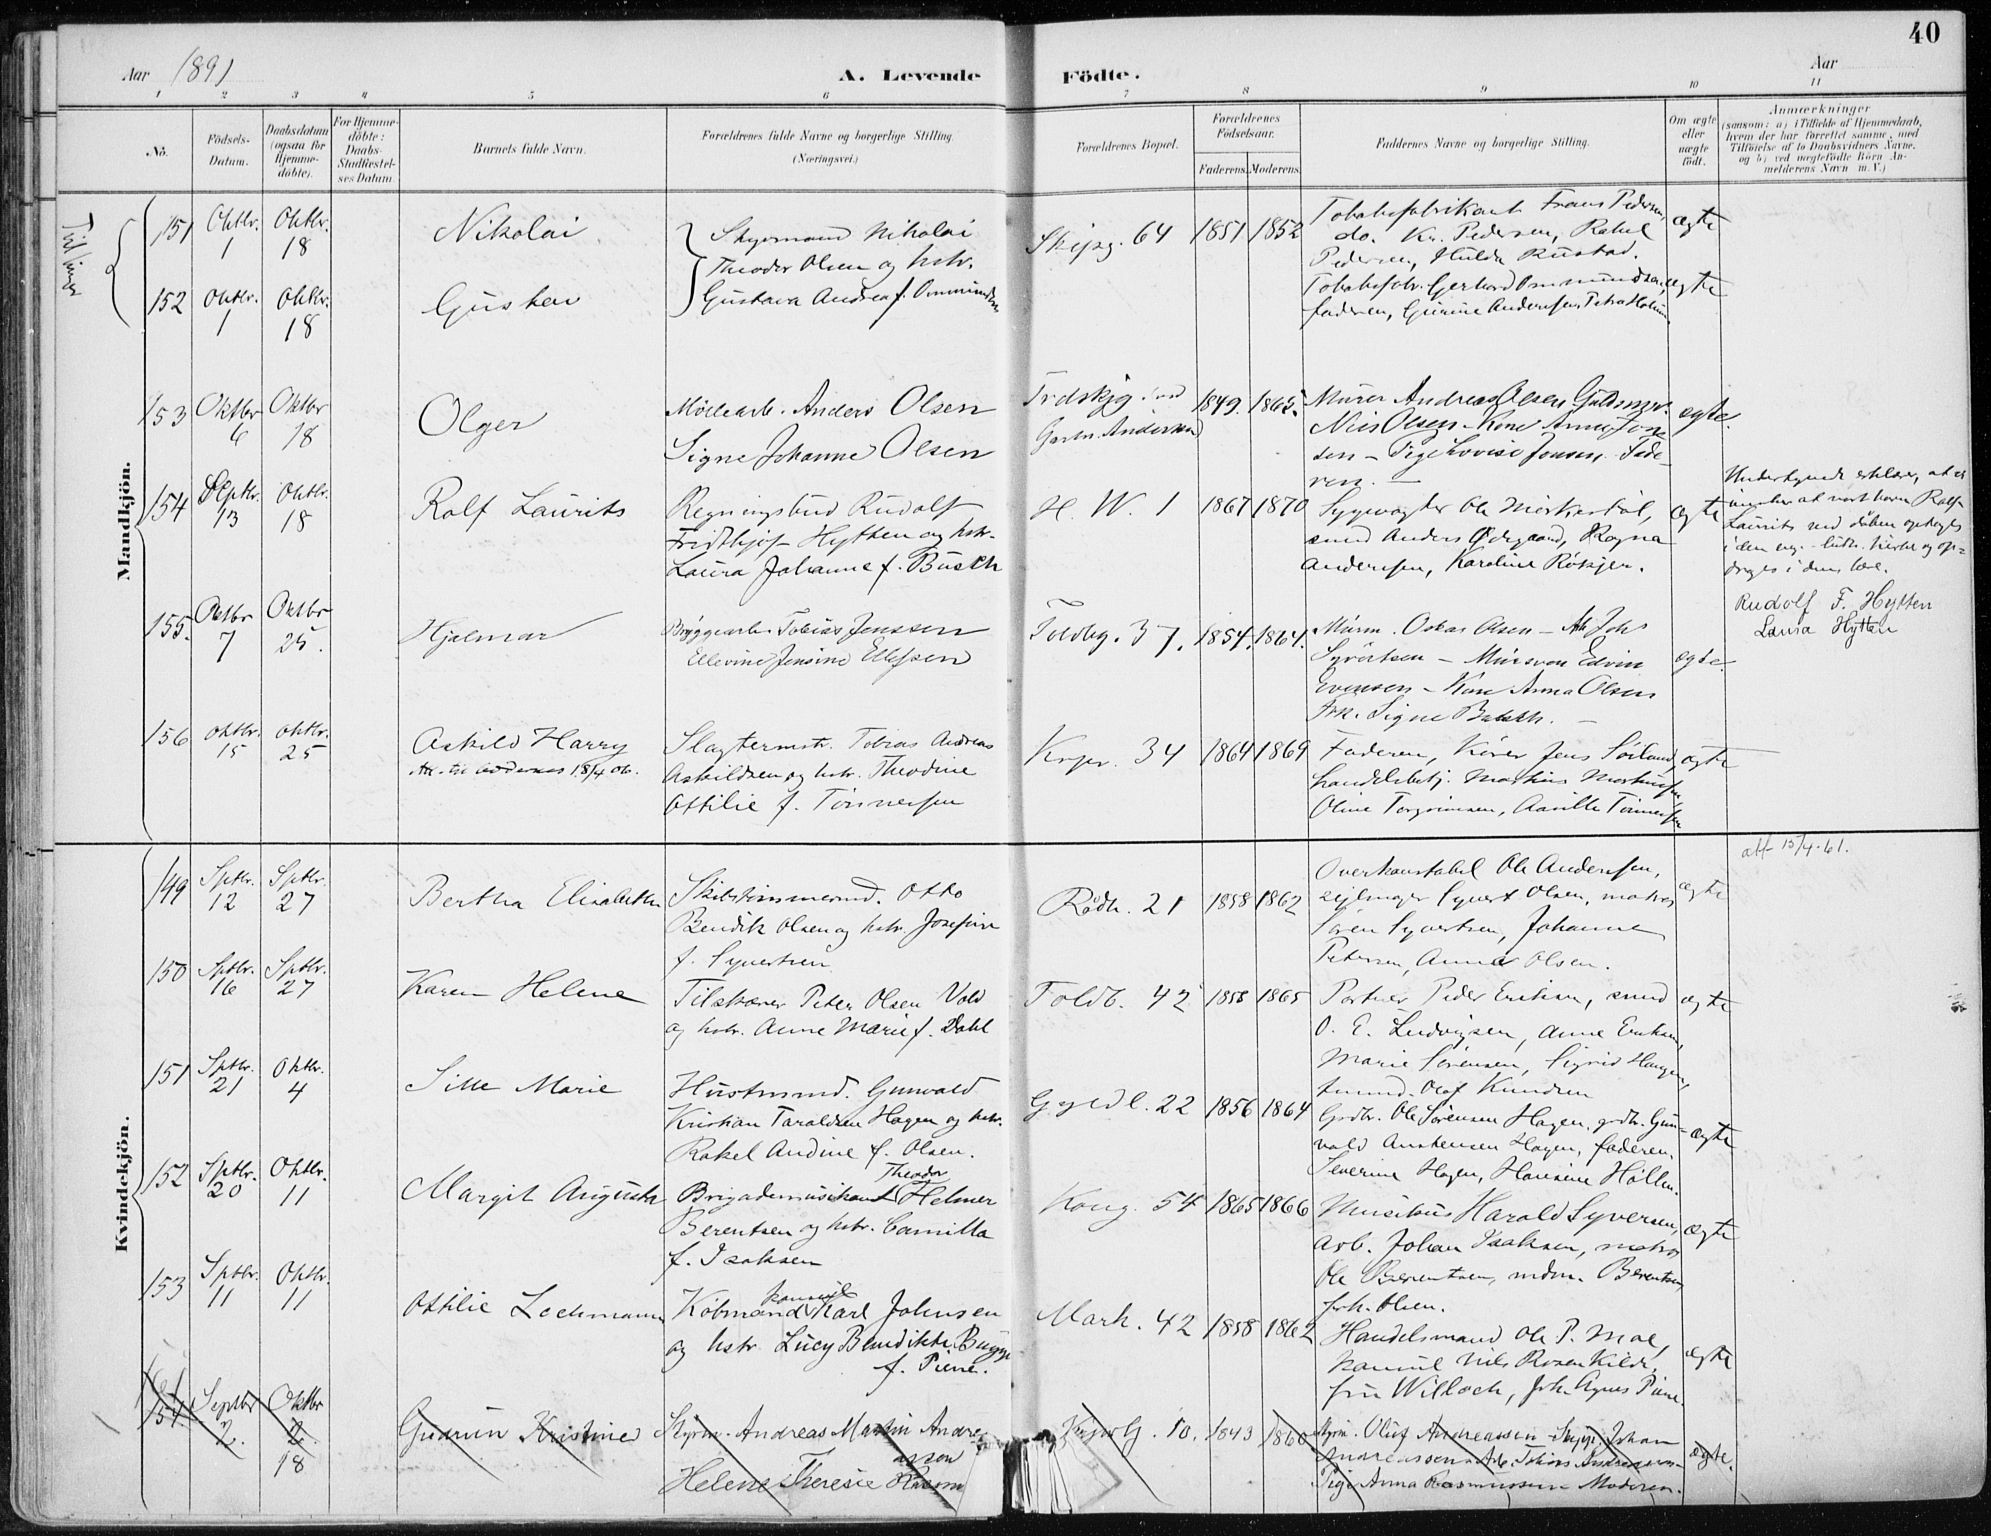 40
Aar 1891
A. Levende Födte.
Aar
1 2 3 4 5 6 7 8 9 10 11
No.
Födsels-Datum.
Daabsdatum (ogsaa for Hjemme-döbte).
For Hjemme-döbte: Daabs-Stadfæstel-ses Datum.
Barnets fulde Navn.
Forældrenes fulde Navne og borgerlige Stilling.
(Næringsvei.)
Forældrenes Bopæl.
Forældrenes Födselsaar.
Faderens. Moderens.
Faddernes Navne og borgerlige Stilling.
Om ægte eller uægte födt.
Anmærkninger
(saasom: a) i Tilfælde af Hjemmedaab, hvem der har forrettet samme, med Tilföielse af to Daabsvidners Navne, og b) ved uægtefödte Börn An-melderens Navn m. V.)
Mandkjön.
151 Oktbr. 1 Oktbr. 18 Nikolai
Styrmand Nikolai
Theodor Olsen og hstr.
Gustava Andrea f. Ommundsen
Skipg. 64 1851 1852
Tobaksfabrikant Frans Pedersen,
do. Kr. Pedersen, Rakel
Pedersen, Hulda Rustad.
ægte
152 Oktbr. 1 Oktbr. 18 Gustav
Tobaksfabr. Gerhard Ommundsen,
faderen, Gurine Andersen, Petra
ægte
153 Oktbr 6 Oktbr 18 Olger
Möllearb. Anders Olsen
Signe Johanne Olsen
Gartn. Andersen
1849. 1865.
Murer Andreas Olsen
Nils Olsen - Kone Anne Jon
sen - Pige Lovise Jonsen, Fade-
ren. -
ægte.
154 Septbr. 13 Oktbr. 18 Rolf Laurits
Regningsbud Rudolf
Fridthjof Hytten og hstr.
Laura Johanne f. Busch
H. W. 1 1867 1870
Sygevogter Ole
smed Anders Ødegaard, Ragna
Andersen, Karoline
ægte
Undertegnede erklære, at vi
önsker at vort barn Rolf
Laurits ved dåben optages
i den ev. luth. kirke og op-
drages i dens lære.
Rudolf F. Hytten
Laura Hytten
155. Oktbr 7 Oktbr 25. Hjalmar
Bryggearb. Tobias Jenssen
Ellevine Jensine Ellefsen
Toldbg. 37. 1854. 1864.
Murm. Oskar Olsen - Arb. Joh
Syvertsen - Mursven Edvin
Evensen - Kone Anna Olsen
Frk. Signe
ægte.
156 Oktbr. 15 Oktbr. 25 Askild Harry
Slagtermstr. Tobias Andreas
Askildsen og hstr. Theodine
Ottilie f. Tönnessen
34 1864 1869
Faderen, Körer Jens Sörland,
handelsbetj. Markus Markussen,
Oline Torgrimsen, Tönnessen
ægte
Kvindekjön.
att 15/4-61.
149 Sptbr. 12 Sptbr. 27 Bertha Elisabeth
Skibstömmermd. Otto
Bendik Olsen og hstr. Josefine
f. Syvertsen
Rådh. 21 1858 1862
Overkonstabel Ole Andersen,
Syvert Olsen, matros
Sören Syvertsen, Johanne
Petersen, Anna Olsen.
ægte
150 Sptbr. 16 Sptbr. 27 Karen Helene
Tilskærer Peter Olsen Vold
og hstr. Anne Marie f. Dahl
Toldb. 42 1858 1865
Portner Peder Eriksen, smed
O. E. Ludvigsen, Anne Eriksen,
Marie Sörensen, Sigrid Haugen,
Olaf Knudsen
ægte
151 Sptbr. 21 Oktbr. 4 Sille Marie
Hustmmd. Gunvald
Kristian Taraldsen Hagen og hstr.
Rakel Andine f. Olsen.
Gyldl. 22 1856 1864
Grdbr. Ole Sörensen Hagen, grdbr. Gun-
vald Anstensen Hagen, faderen,
Severine Hagen, Hansine
ægte
152 Sptbr. 20 Oktbr. 11 Margit Augusta
Brigademusikant Theodor Helmer
Berentsen og hstr. Camilla
f. Isaksen
Kong. 54 1865 1866
Musikus Harald Syversen,
Arb. Johan Isaksen, matros
Ole Berentsen, mdm. Berentsen,
frk. Olsen.
ægte
153 Sptbr. 11 Oktbr. 11 Ottilie Lochmann
Köbmand konsul Karl Johnsen
og hstr. Lucy Bendikke Bugge
f. Piene.
Mark. 42 1858 1862
Handelsmand Ole P. Moe,
konsul Nils Rosenkilde,
fru Willoch, frk. Agnes Piene
ægte
154. Septbr 2. Oktbr 2. 18 Gudrun Kristine
Styrm. Andreas Martin Andre
assen
Helene Theresie
10. 1843 1860
Styrm. Oluf Andreassen - Johan
Andreassen - Arb. Tobias Andreassen -
Pige Anna Rasmussen - Moderen.
ægte.